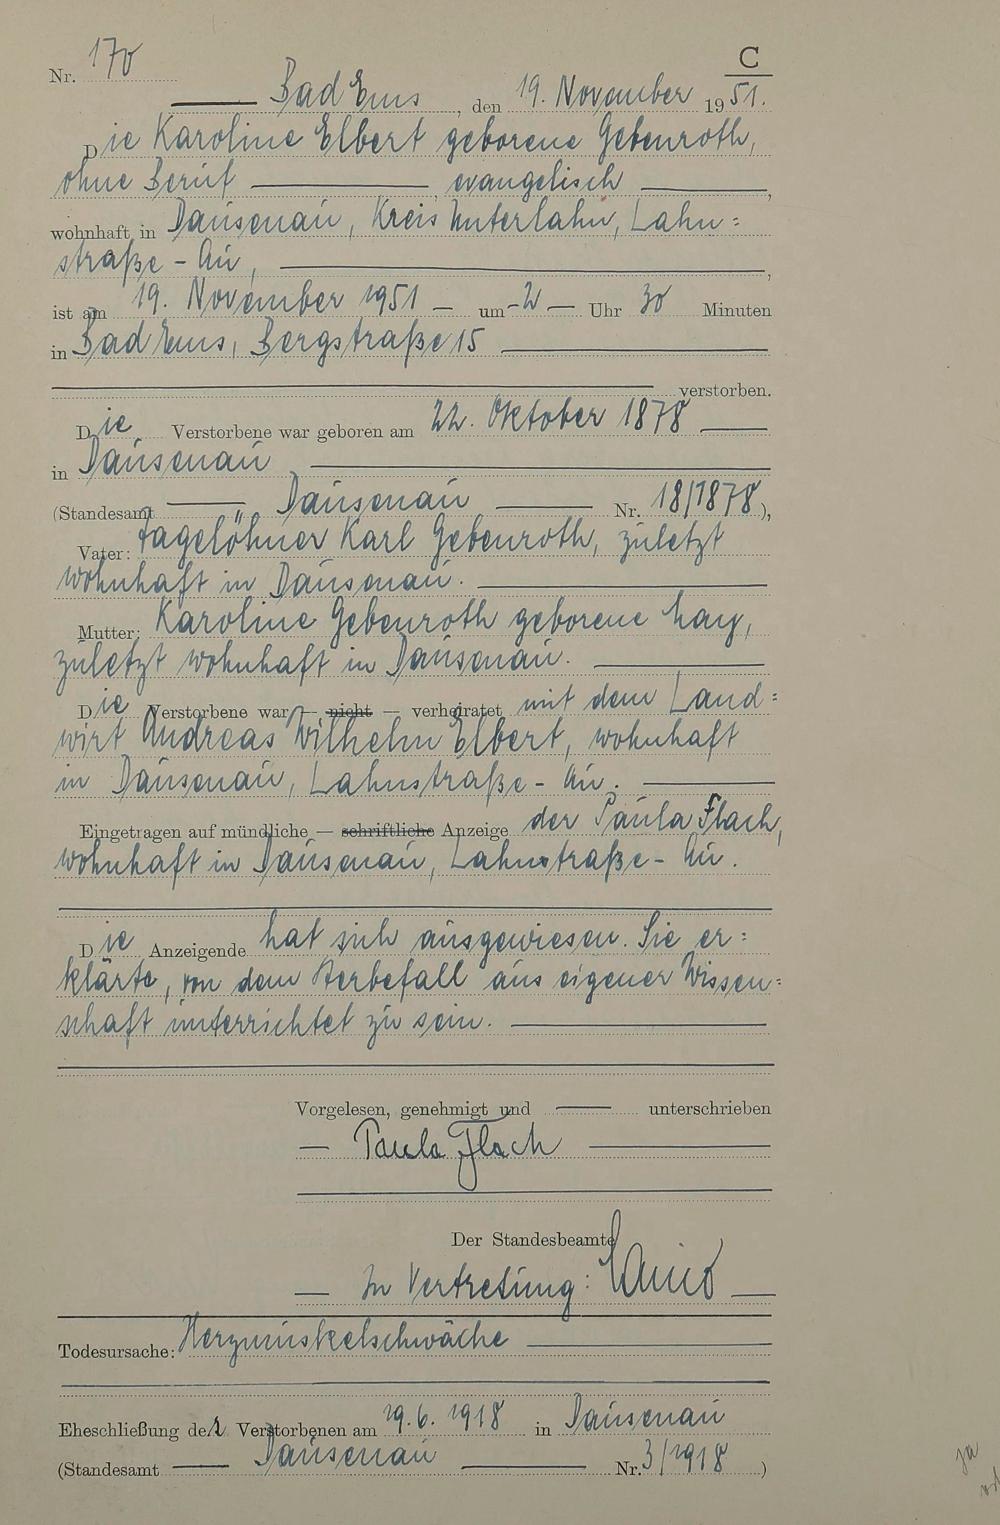 C
Nr. 170
Bad Ems, den 19. November 1951.
Die Karoline Elbert geborene Gebenroth,
ohne Beruf evangelisch,
wohnhaft in Dausenau, Kreis Unterlahn, Lahn=
straße - Au,
ist am 19. November 1951 — um - 2 — Uhr 30 Minuten
in Bad Ems, Bergstraße 15
verstorben.
Die Verstorbene war geboren am 22. Oktober 1878
in Dausenau
(Standesamt Dausenau Nr. 18/1878),
Vater: Tagelöhner Karl Gebenroth, zuletzt
wohnhaft in Dausenau.
Mutter: Karoline Gebenroth geborene Lay,
zuletzt wohnhaft in Dausenau.
Die Verstorbene war — nicht — verheiratet mit dem Land=
wirt Andreas Wilhelm Elbert, wohnhaft
in Dausenau, Lahnstraße - Au.
Eingetragen auf mündliche — schriftliche Anzeige der Paula Flach,
wohnhaft in Dausenau, Lahnstraße - Au.
Die Anzeigende hat sich ausgewiesen. Sie er=
klärte, von dem Sterbefall aus eigener Wissen=
schaft unterrichtet zu sein.
Vorgelesen, genehmigt und — unterschrieben
— Paula Flach
Der Standesbeamte
— In Vertretung:
Todesursache: Herzmuskelschwäche
Eheschließung der Verstorbenen am 19.6.1918 in Dausenau
(Standesamt Dausenau Nr. 3/1918)
ja